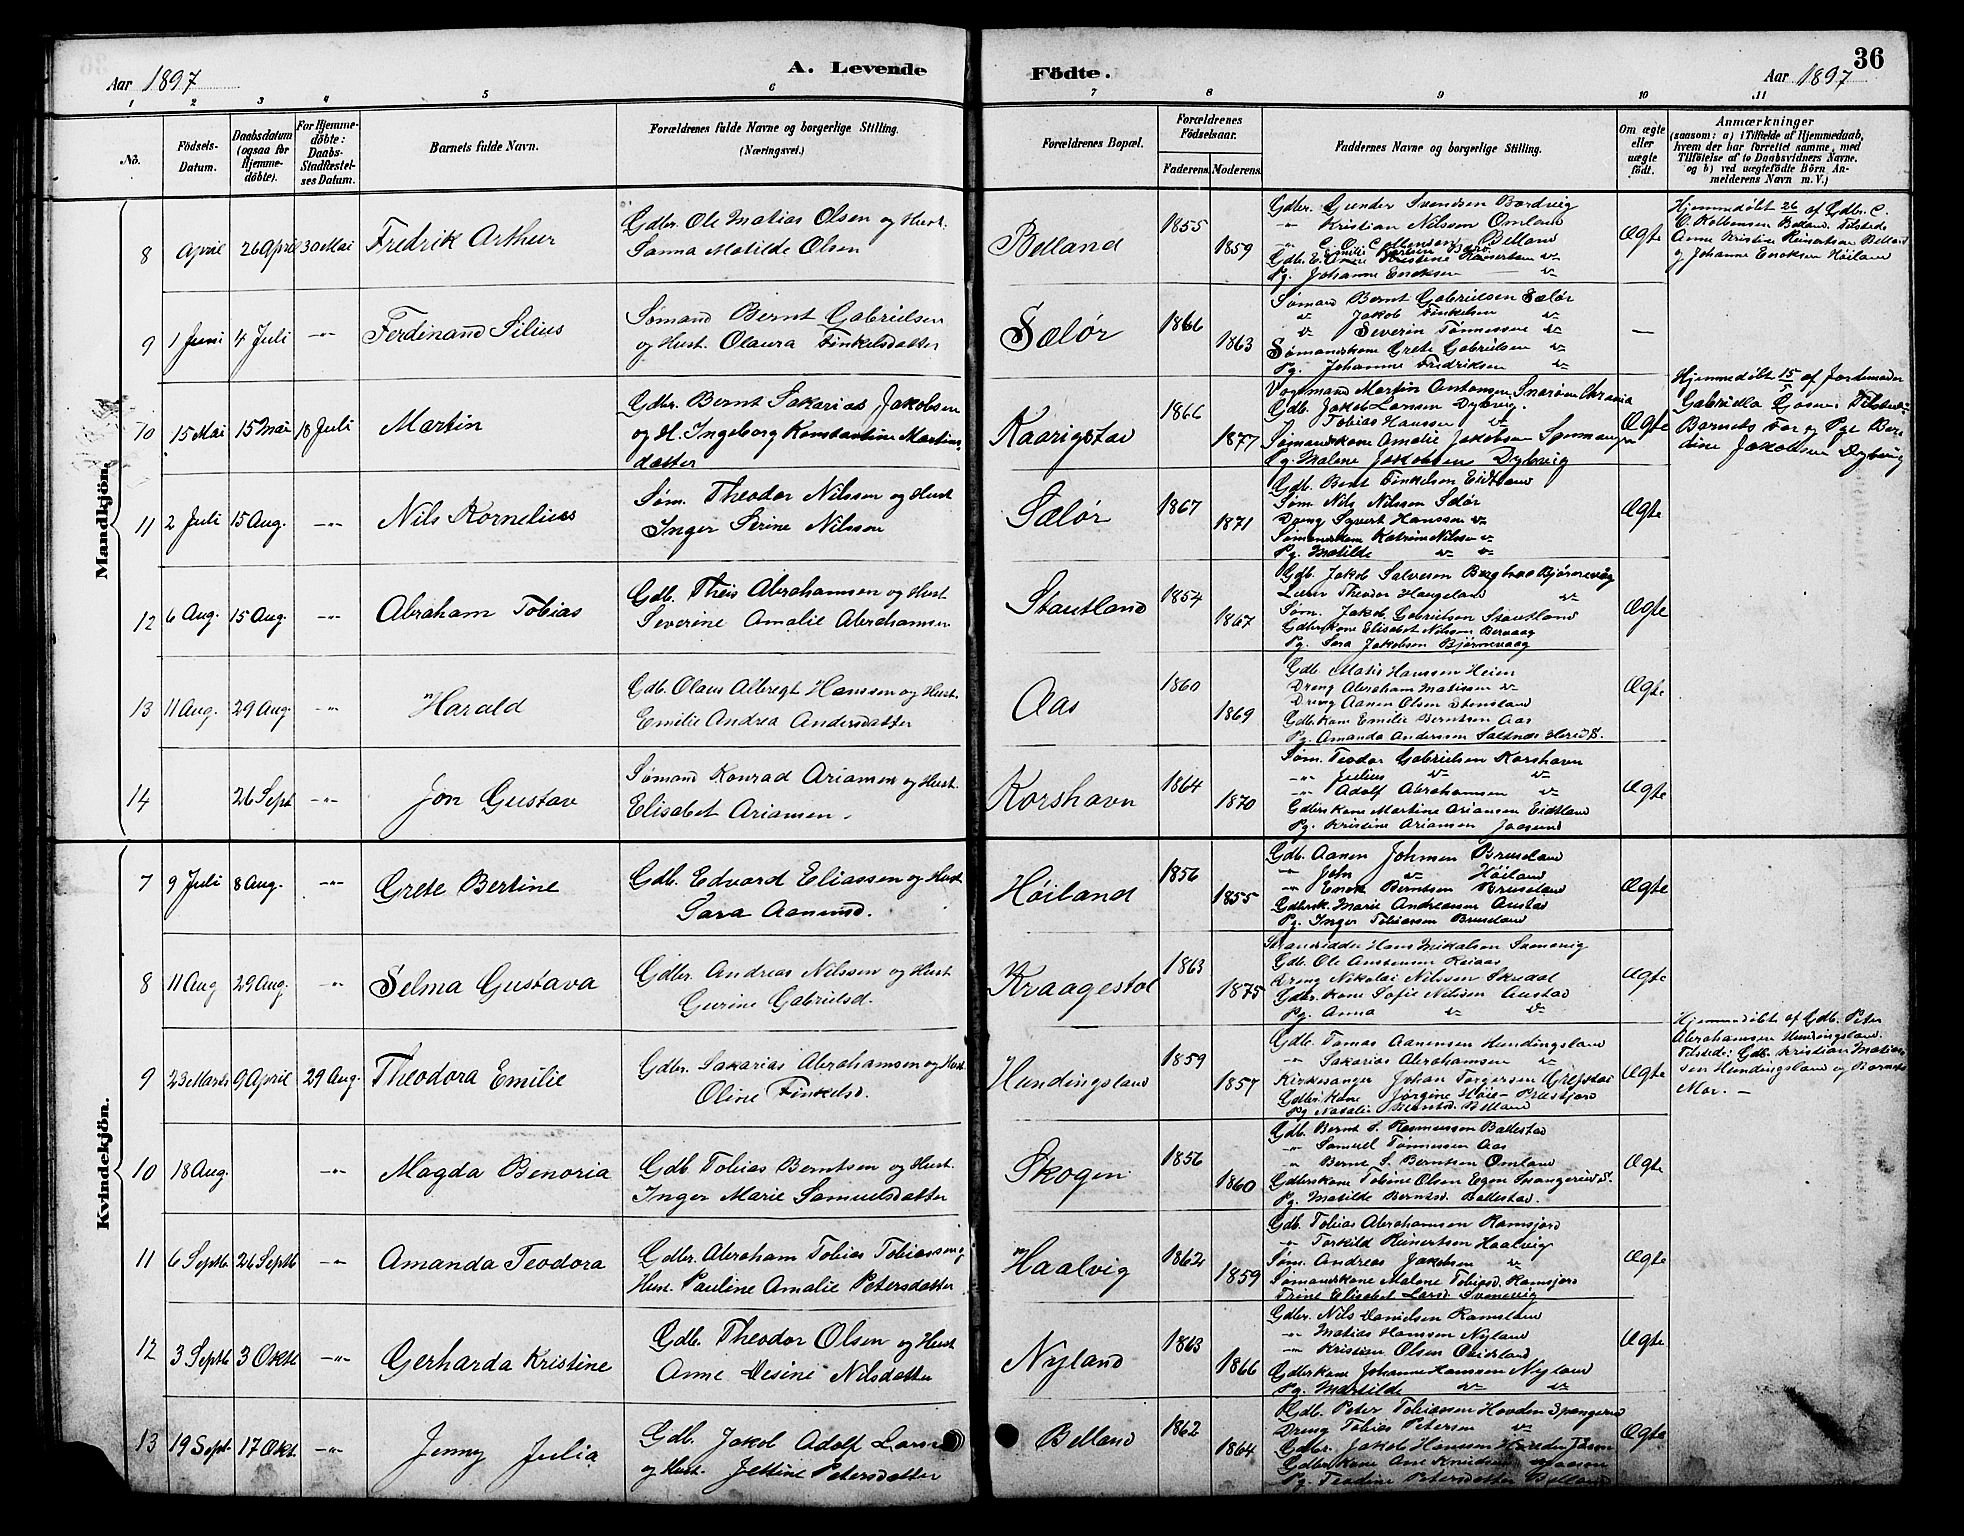 36
Aar 1897
A. Levende
Fødte.
Aar 1897
1 2 3 4 5 6 7 8 9 10 11
No.
Fødsels-Datum.
Daabsdatum (ogsaa for Hjemme-døbte).
For Hjemme-døbte: Daabs-Stadfæstel-ses Datum.
Barnets fulde Navn.
Forældrenes fulde Navne og borgerlige Stilling. (Næringsvei.)
Forældrenes Bopæl.
Forældrenes Fødselsaar.
Faderens. Moderens.
Faddernes Navne og borgerlige Stilling.
Om ægte eller uægte født.
Anmærkninger
(saasom: a) i Tilfælde af Hjemmedaab,
hvem der har forrettet samme, med
Tilføielse af to Daabsvidners Navne,
og b) ved uægtefødte Børn An-
melderens Navn m. V.)
Mandkjøn.
8 April 26 April 30 Mai Fredrik Arthur
Gdbr. Ole Matias Olsen og Hust.
Sanna Matilde Olsen
Belland 1855 1859
Gdbr. Gunder Svendsen Bardvig
" Kristian Nilsson Omland
Pg. Johanne Enoksen
Ægte
Hjemmedøbt 26 af Gdbr. C.
O. Kolbensen Belland. Tilstede
Anne Kristine Reinertsen Belland
og Johanne Enoksen Høiland
9 1 Juni 4 Juli -"- Ferdinand Silius
Sømand Bernt Gabrielsen
og Hust. Olaura Finkelsdatter
Sælør 1866 1863
Sømand Bernt Gabrielsen Sælør
" Jakob Finkelsen "
" Severin Tønnessen "
Sømandskone Grete Gabrielsen "
Pg. Johanne Fredriksen "
—
10 15 Mai 15 Mai 18 Juli Martin
Gdbr. Bernt Sakarias Jakobsen
og H. Ingeborg Konstantine Martins-
datter
Kaarigstad 1866 1877
Vogtmand Martin Antonsen
Gdb. Jakob Larsen Dybvig.
Tobias Hanssen "
Sømandskone Amalie Jakobsen
Pg. Malene Jakobsen Dybvig
Ægte
Hjemmedøbt 15/5 af Jordemoder
Barnets Far og Pge
Jakobsen Dybvig
11 2 Juli 15 Aug. -"- Nils Kornelius
Søm. Theodor Nilssen og Hust
Inger Serine Nilsson
Sælør 1867 1871
Gdb. Bernt Finkelsen Eidtland
Søm. Nils Nilsson Sælør
Dreng Syvert Hanssen "
Sømandskone Katrine Nilsson "
Pg. Matilde " "
Ægte
12 6 Aug. 15 Aug. -"- Abraham Tobias
Gdb. Theis Abrahamsen og Hust
Severine Amalie Abrahamsen
Stautland 1854 1867
Gdb. Jakob Salveson
Theodor Haugeland "
Søm. Jakob Gabrielson Stautland
Gdbrskone Elisabet Nilsson Bervaag
Pg. Sara Jakobsen Bjørnevaag
Ægte
13 11 Aug. 29 Aug. -"- Harald
Gdb. Olaus Albregt Hanssen og Hust.
Emilie Andrea Andersdatter
Aas 1860 1869
Gdb. Matis Hanssen Heien
Dreng Abraham Matissen "
Dreng Aanen Olsen Stensland
Gdb. kone Emilie Berntsen Aas
Pg. Amanda Anderssen
Ægte
14 26 Sept -"- Jon Gustav
Sømand Konrad Ariansen og Hust.
Elisabet Ariansen.
Korshavn 1864 1870
Søm. Teodor Gabrielsen Korshavn
-"- Julius " "
-"- Adolf Abrahamsen "
Gdbrskone Martine Ariansen Eidtland
Pg. Kristine Ariansen Jaasund
Ægte
Kvindekjøn.
7 9 Juli 8 Aug. -"- Grete Bertine
Gdb. Edvard Eliassen og Hust
Sara Aanensd.
Høiland 1856 1855
Gdb. Aanen Johnsen Bruseland
" John " Høiland
" Enok Berntsen Bruseland
Gdbrsk. Marie Andreassen Austad
Pg. Inger Tobiassen Bruseland
Ægte
8 11 Aug 29 Aug. -"- Selma Gustava
Gdbr. Andreas Nilssen og Hust
Gurine Gabrielsd.
Kraagestol 1863 1875
Strandsidder Hans Mikalsen Svenevig
Gdb. Ole Austensen
Dreng Nikolai Nilssen Skrudal
Gdbr. kone Sofie Nilssen Austad
Pg. Anna " "
Ægte
9 23 Marts 9 April 29 Aug. Theodora Emilie
Gdbr. Sakarias Abrahamsen og Hust.
Oline Finkelsd.
Hundingsland 1859 1857
Gdb. Tomas Aanensen Hundingsland
" Sakarias Abrahamsen "
Kirkesanger Johan Torgersen Grefstad
Gdbr. kone Jørgine Høie
Pg. Natalie Berntsd. Belland
Ægte
Hjemmedøbt af Gdb. Peter
Abrahamsen Hundingsland.
Tilstede: Gdb. Kristian Matias-
sen Hundingsland og Barnets
Mor. —
10 18 Aug. -"- Magda Benoria
Gdb Tobias Berntsen og Hust.
Inger Marie Samuelsdatter
Skogen 1856 1860
Gdb. Bernt S. Rasmussen Ballestad
" Samuel Tønnessen Aas
" Bernt S. Berntsen Omland
Gdbrskone Tobine Olsen Egen Spangereid S.
Pg. Matilde Berntsd. Ballestad.
Ægte
11 6 Septb. 26 Septb -"- Amanda Teodora
Gdbr. Abraham Tobias Tobiassen og
Hust. Pauline Amalie Petersdatter
Haalvig 1862 1859
Gdb. Tobias Abrahamsen Ramsjord
" Torkild Reinertsen Haalvig
Søm. Andreas Jakobsen "
Sømandskone Malene Tobiasd. Ramsjord
Trine Elisabet Larsd. Svenevig
Ægte
12 3 Septb 3 Oktb -"- Gerharda Kristine
Gdb. Theodor Olsen og Hust
Anne Desine Nilsdatter
Nyland 1863 1866
Gdbr. Nils Danielsen Ramsland
-"- Matias Hanssen Nyland
-"- Kristian Olsen
Gdbrkone Johanne Hanssen Nyland
Pg. Matilde " "
Ægte
13 19 Sept. 17 Okt. -"- Jenny Julia
Gdb. Jakob Adolf Larsen
og Hust. Jettine Petersdatter
Belland 1862 1864
Gdb. Peter Tobiassen Hovden Spangereid
Dreng Tobias Petersen "
Gdbr. Jakob Hanssen
Gdbrs kone Ane Knudsen
Pg. Teodine Petersdatter Belland
Ægte